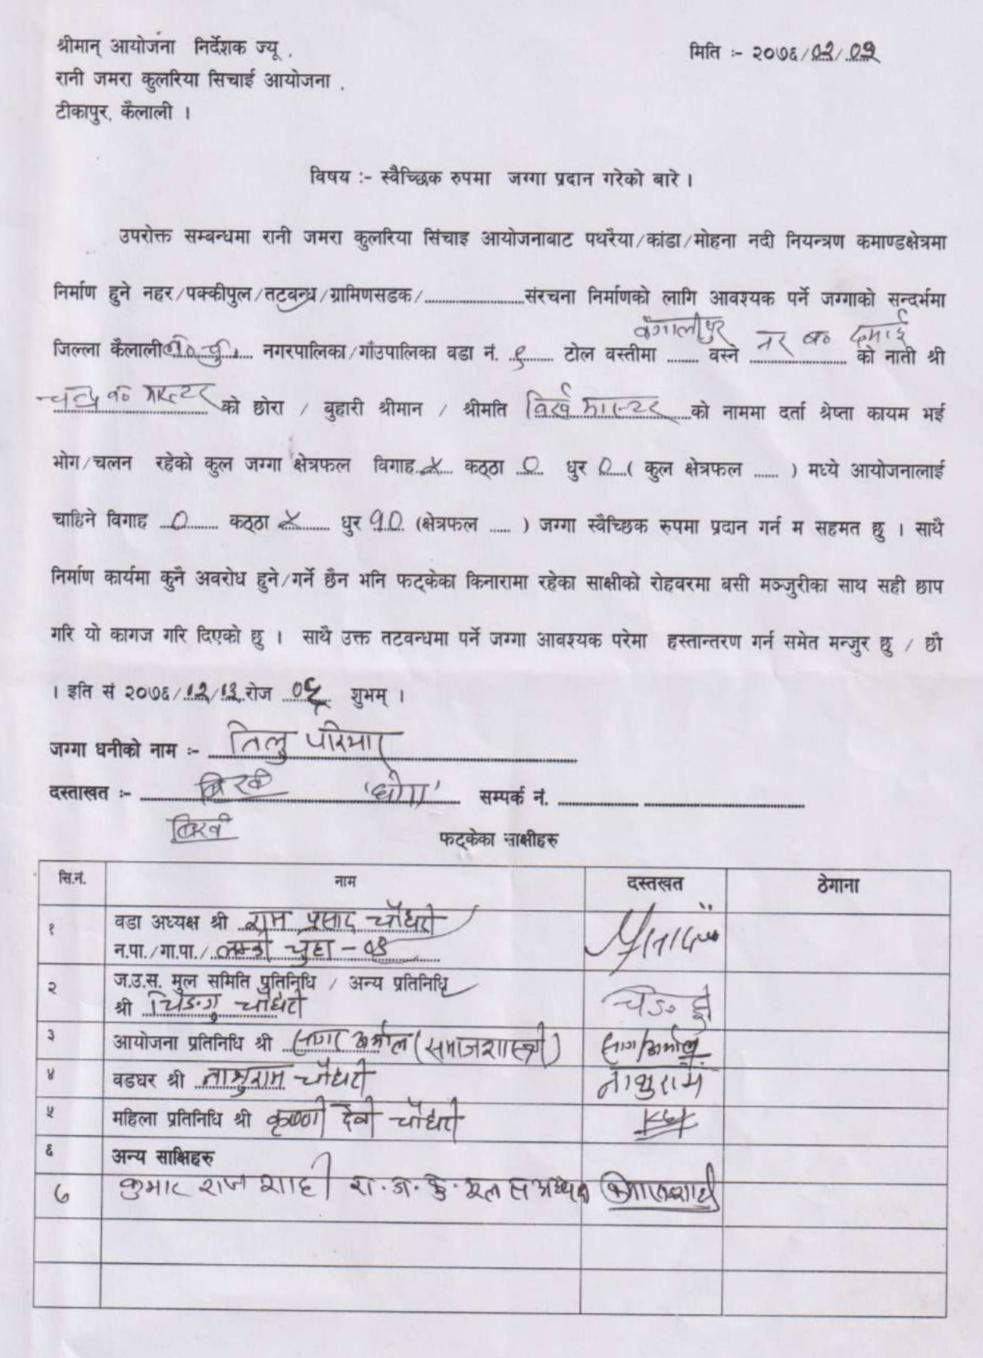 श्रीमान् आयोजना निर्देशक ज्यू .
मिति :- २०७६/0२/0९
रानी जमरा कुलरिया सिचाई आयोजना .
टीकापुर, कैलाली ।
विषय :- स्वैच्छिक रुपमा जग्गा प्रदान गरेको बारे ।
उपरोक्त सम्बन्धमा रानी जमरा कुलरिया सिंचाइ आयोजनाबाट पथरैया/कांडा/मोहना नदी नियन्त्रण कमाण्डक्षेत्रमा
निर्माण हुने नहर/पक्कीपुल/तटबन्ध/ग्रामिणसडक/........................संरचना निर्माणको लागि आवश्यक पर्ने जग्गाको सन्दर्भमा
जिल्ला कैलाली ल० चु० नगरपालिका/गाँउपालिका वडा नं. ९ टोल वस्तीमा बंगालीपुर वस्ने नर ब० दमाई को नाती श्री
चन्द्र ब० को छोरा / बुहारी श्रीमान / श्रीमति को नाममा दर्ता श्रेष्ता कायम भई
भोग/चलन रहेको कुल जग्गा क्षेत्रफल विगाह x कठ्ठा 0 धुर 0 ( कुल क्षेत्रफल ...... ) मध्ये आयोजनालाई
चाहिने विगाह 0 कठ्ठा x धुर १0 (क्षेत्रफल ...... ) जग्गा स्वैच्छिक रुपमा प्रदान गर्न म सहमत छु । साथै
निर्माण कार्यमा कुनै अवरोध हुने/गर्ने छैन भनि फट्केका किनारामा रहेका साक्षीको रोहवरमा बसी मञ्जुरीका साथ सही छाप
गरि यो कागज गरि दिएको छु । साथै उक्त तटवन्धमा पर्ने जग्गा आवश्यक परेमा हस्तान्तरण गर्न समेत मन्जुर छु / छौ
। इति सं २०७६/१२/१३ रोज 0६ शुभम् ।
जग्गा धनीको नाम :- तिलु परिभार
दस्ताखत :- बिर्ख सम्पर्क नं. ........................
बिर्ख
फट्केका साक्षीहरु
सि.नं. नाम दस्तखत ठेगाना
१ वडा अध्यक्ष श्री राम प्रसाद चौधरी
न.पा./गा.पा./ लम्की चुहा - 0९
२ ज.उ.स. मुल समिति प्रतिनिधि / अन्य प्रतिनिधि
श्री चिङगु चौधरी
३ आयोजना प्रतिनिधि श्री (समाजशास्त्री)
४ वडघर श्री नाथुराम चौधरी नाथुराम
५ महिला प्रतिनिधि श्री कृष्णी देवी चौधरी
६ अन्य साक्षिहरु
७ कुमार राज शाही रा. ज. कु. मूल स अध्यक्ष